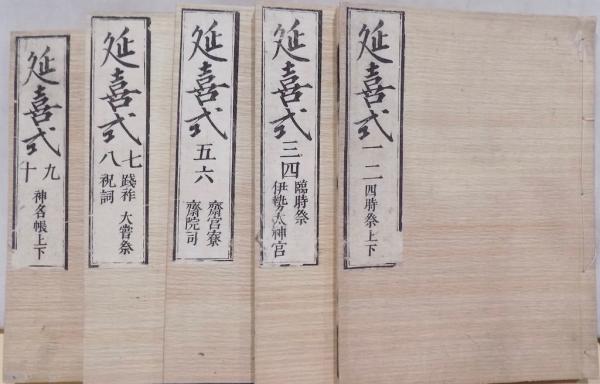 延喜式 一 二
四時祭上下
延喜式 三四
臨時祭
伊勢太神宮
延喜式 五六
齋宮寮
齋院司
延喜式 七八
踐祚 大嘗祭
祝詞
延喜式 九十
神名帳上下